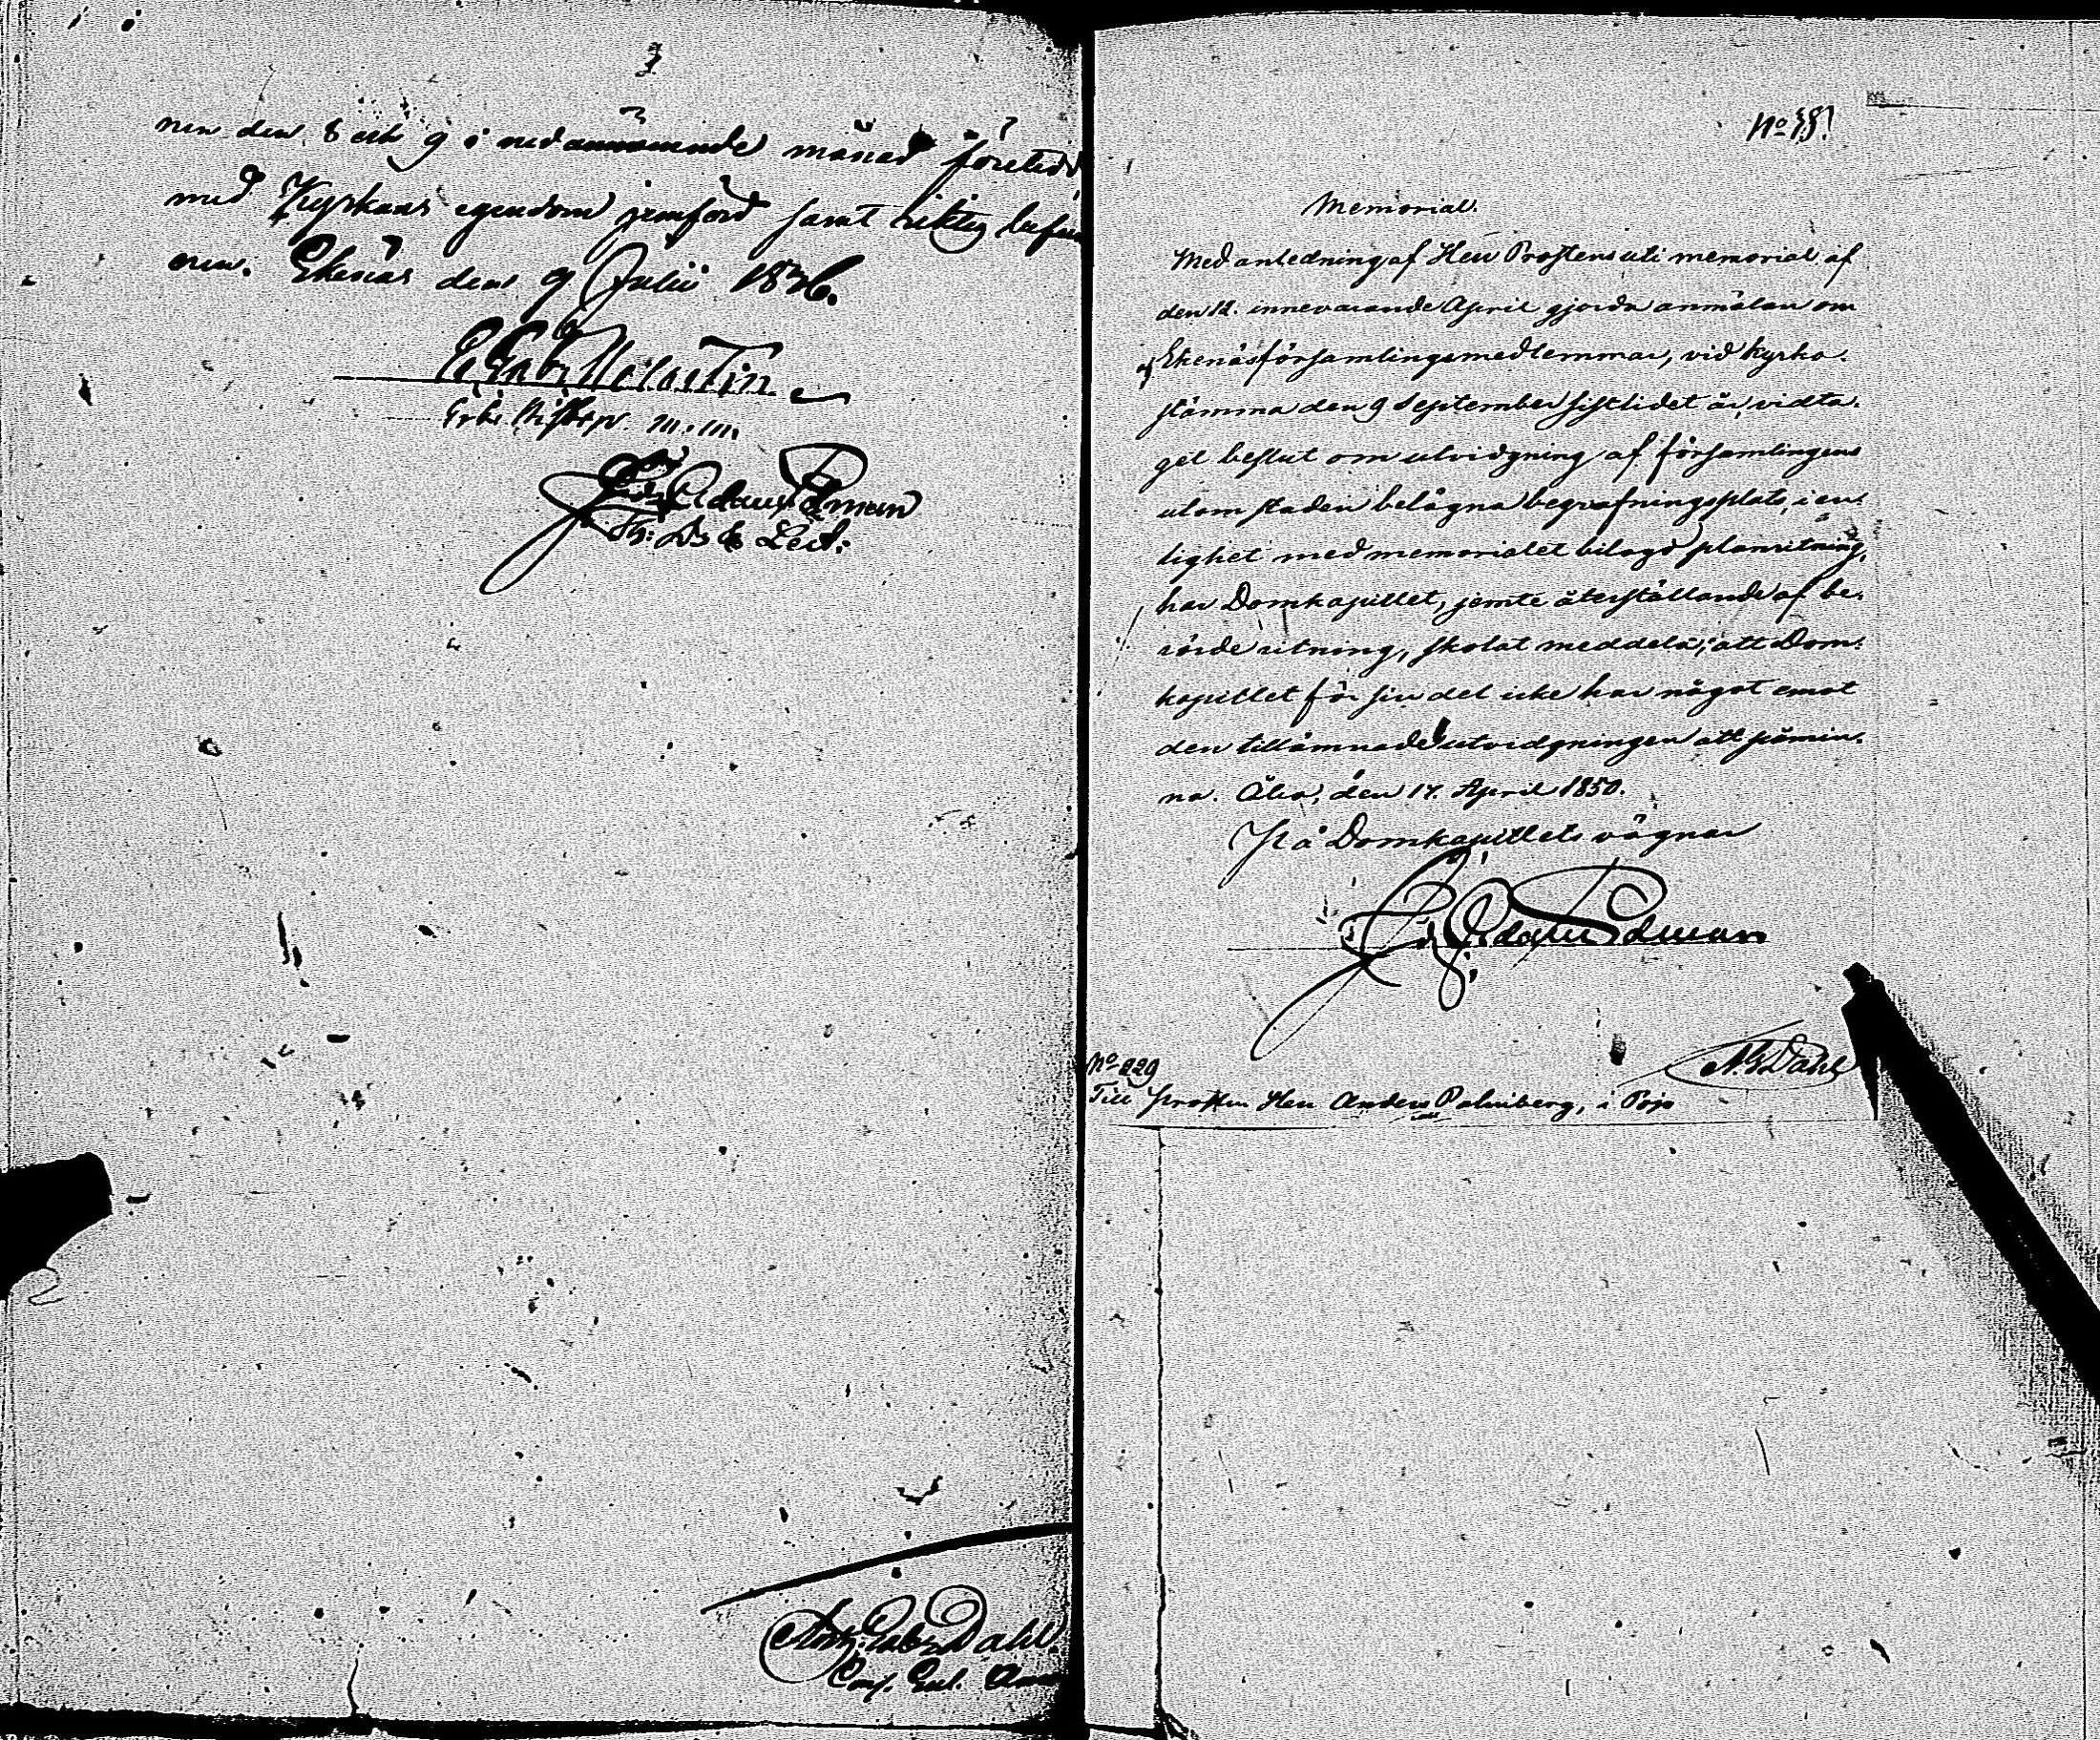 nen den 8 och 9 i nedannämnde månad företedd
med Kyrkans egendom jemförd samt riktig befun
nen. Ekenäs den 9 Julii 1836.
E. Gab. Melartin
Erke Biskop. m.m.
Joh. Adam Edman
Th: Dr & Lect:
Anth. Gabr. Dahl.
Cons. Eccl.
No
Memorial.
Med anledning af Herr Prostens uti memorial af
den 12. innevarande April gjorda anmälan om
af Ekenäs församlingsmedlemmar, vid kyrko-
stämma den 9 September sistlidet år, vidta-
get beslut om utvidgning af församlingens
utom staden belägna begrafningsplats, i en-
lighet med memorialet bilagd planritning,
har Domkapitlet, jemte återställande af be-
rörde ritning, skolat meddela, att Dom-
kapitlet för sin del icke har något emot
den tillämnade utvidgningen att påmin-
na. Åbo, den 17. April 1850.
På Domkapitlets vägnar
Joh. Adam Edman
A. G. Dahl
No 229
Till Prosten Herr Anders Palmberg, i Pojo